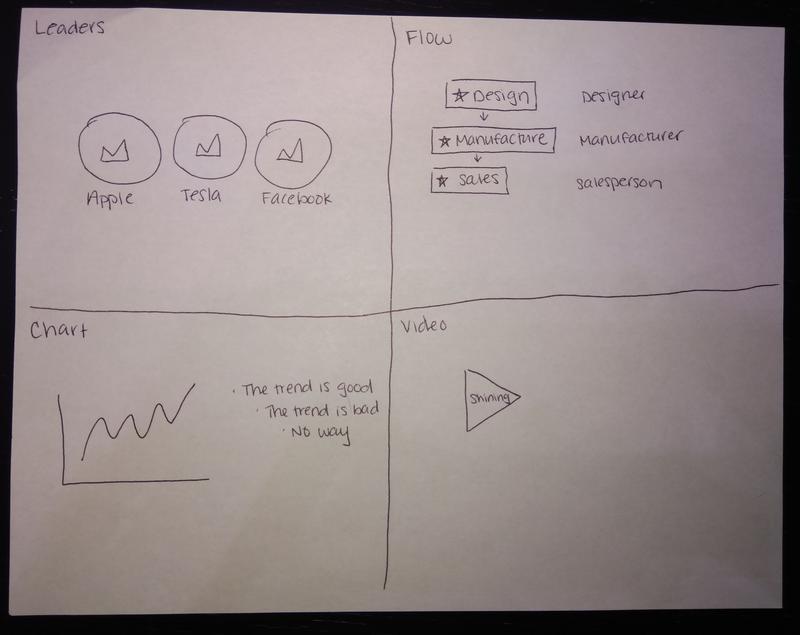 Leaders
Apple
Tesla
Facebook
Flow
Design
Designer
Manufacture
Manufacturer
Sales
Salesperson
Chart
· The trend is good
· The trend is bad
· No way
Video
Shining